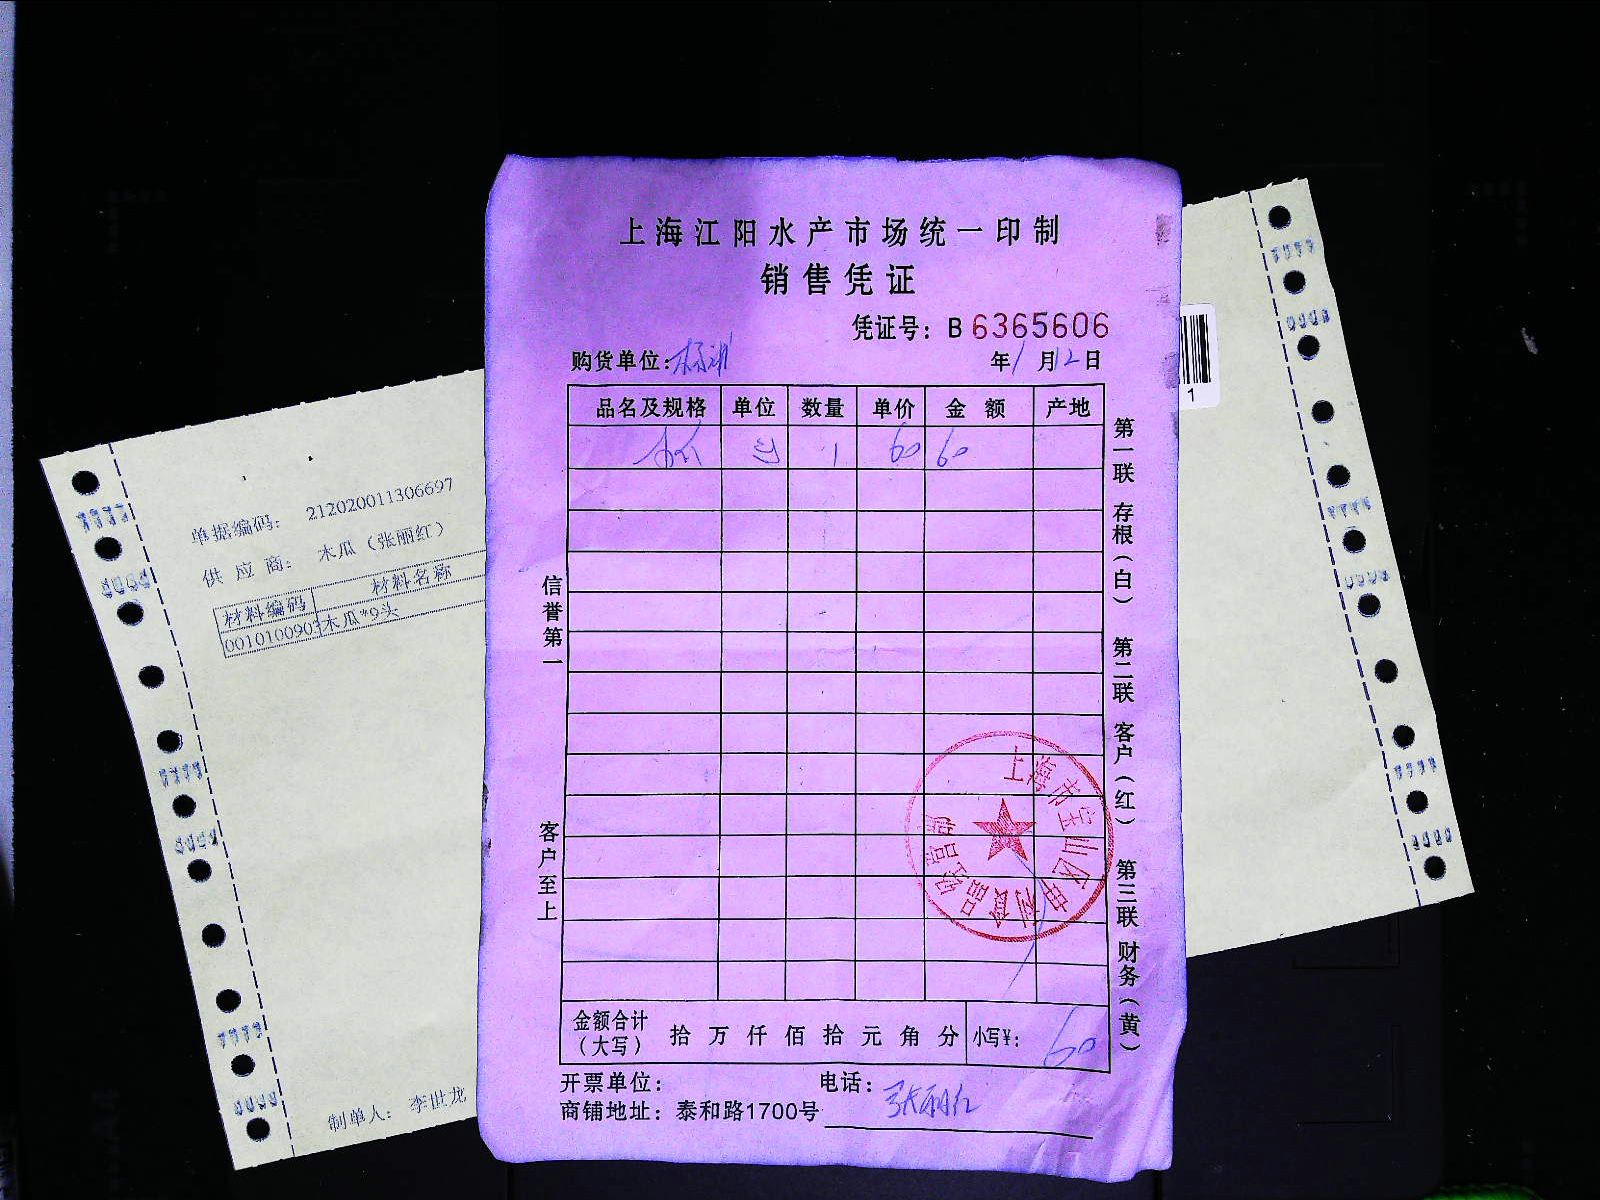 上海江阳水产市场统一印制
销售凭证
凭证号：B 6365606
购货单位：
年1月12日
品名及规格 单位 数量 单价 金额 产地
1 60 60
信誉第一 客户至上
第一联 存根（白） 第二联 客户（红） 第三联 财务（黄）
上海市宝山区申利食品经营部
金额合计（大写） 拾 万 仟 佰 拾 元 角 分 小写¥： 60
开票单位： 电话：
商铺地址：泰和路1700号 张丽红
单据编码： 212020011306697
供应商： 木瓜（张丽红）
材料编码 材料名称
0010100903 木瓜*9头
制单人： 李世龙
1